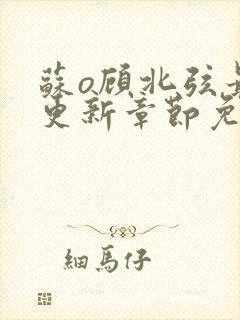 蘇o顾北弦最
更新章節免
細馬仔